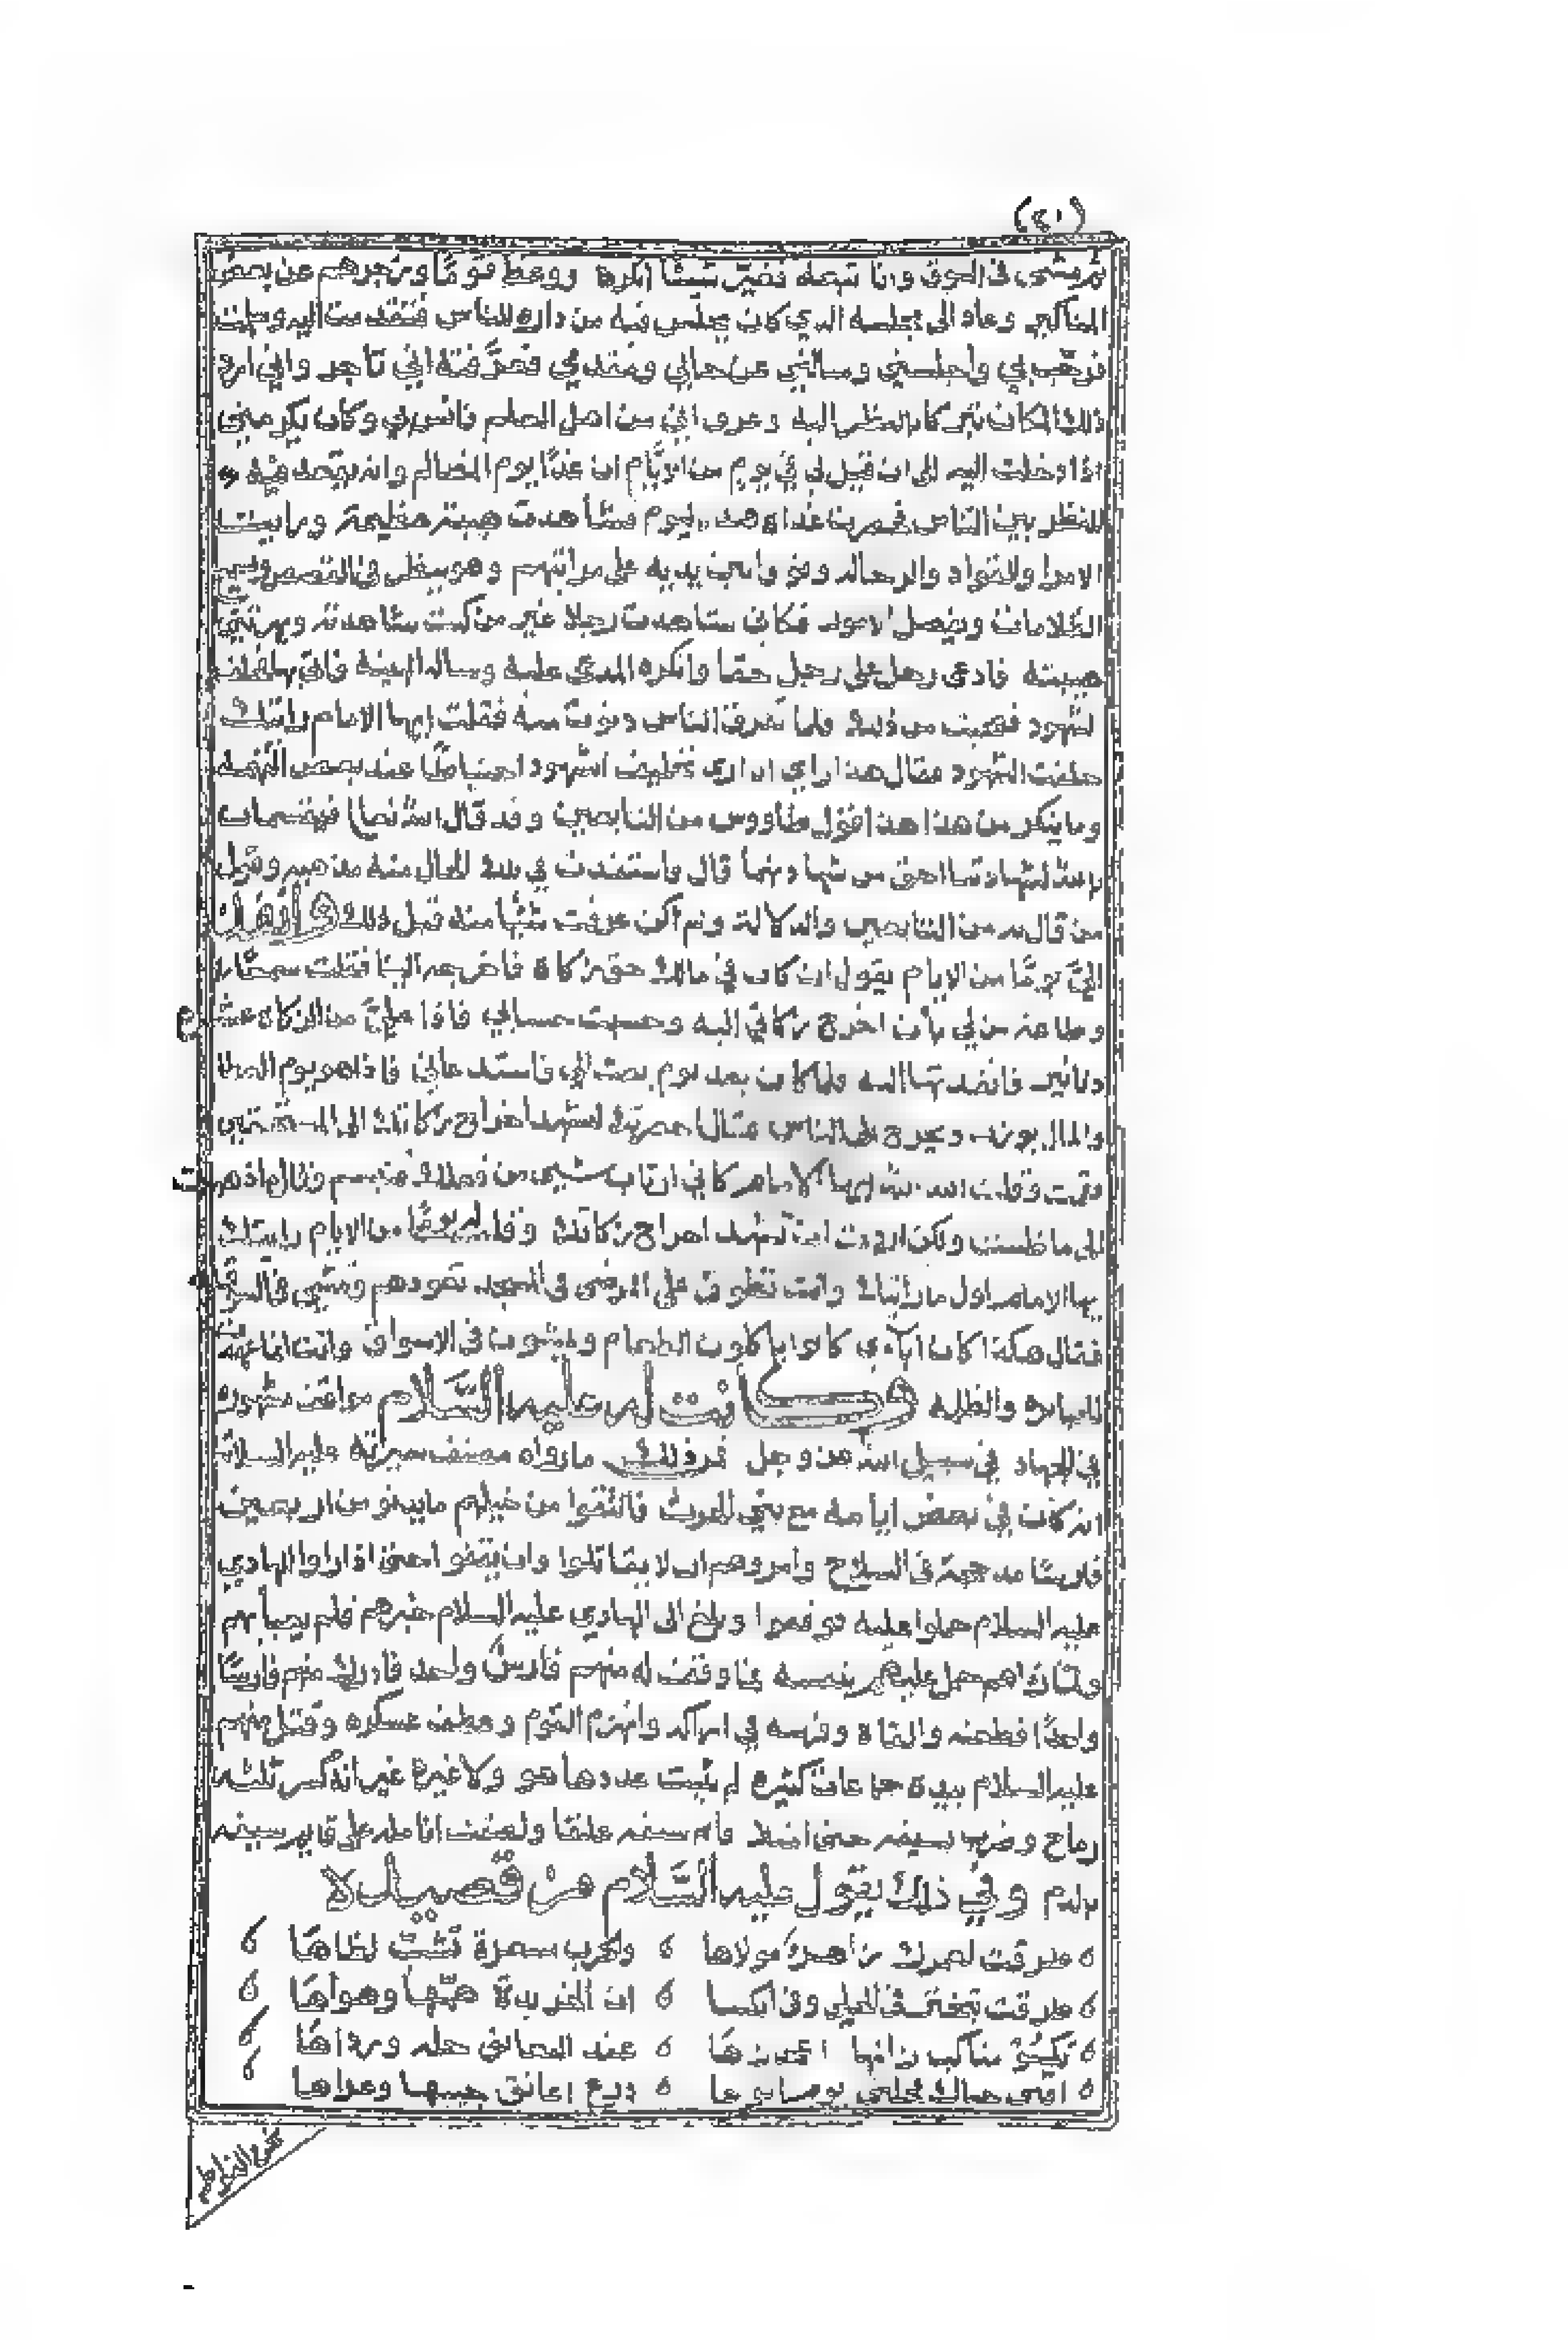 (٢١)
ثم مشى في السوق وانا اتبعه فغير شيئا انكره ووعظ قوما وزجرهم عن بعض
المناكير وعاد الى مجلسه الذي كان يجلس فيه من داره للناس فتقدمت اليه وسلمت
فرحب بي واجلسني وسالني عن حالي ومقدمي فعرفته اني تاجر واني اردت
ذلك المكان تبركا بالنظر اليه وعرف اني من اهل العلم فانس بي وكان يكرمني
اذا دخلت اليه الى ان قيل لي في يوم من الايام ان غدا يوم المظالم وانه يقعد فيه
للنظر بين الناس فحضرت غداة هذا اليوم فشاهدت هيبة عظيمة ورايت
الامرا والقواد والرجاله وقوفا بين يديه على مراتبهم وهو ينظر في القصص ويسمع
الظلامات ويفصل الامور فكاني شاهدت رجلا غير من كنت شاهدته وبهرتني
هيبته فادعى رجل على رجل حقا وانكره المدعى عليه وساله البينة فاتى بها فحلف
الشهود فعجبت من ذلك فلما تفرق الناس دنوت منه فقلت ايها الامام رايتك
حلفت الشهود فقال هذا راي انا ارى تحليف الشهود احتياطا عند بعض التهمه
وما ينكر من هذا هذا قول طاووس من التابعين وقد قال الله تعالى فيقسمان
بالله لشهادتنا احق من شهادتهما قال واستفدت في تلك الحال منه مذهبه وقول
من قال به من التابعين والدلالة ولم اكن عرفت شيئا منه قبل ذلك وانفذ
الي يوما من الايام يقول ان كان في مالك حق زكاة فاخرجه الينا فقلت سمعا
وطاعة من لي بأن اخرج زكاتي اليه وحسبت حسابي فاذا علي من الزكاة عشرة
دنانير فانفذتها اليه فلما كان بعد يوم بعث الي فاستدعاني فاذا هو يوم العطا
والمال يوزن ويخرج الى الناس فقال احضرتك لتشهد اخراج زكاتك الى المستحقين
فقمت وقلت الله الله ايها الامام كاني ارتاب بشيء من فعلك فتبسم وقال ما ذهبت
الى ما ظننت ولكن اردت ان تشهد اخراج زكاتك وقلت له يوما من الايام رايتك
ايها الامام اول ما رايتك وانت تطوف على المرضى في المسجد تعودهم وتمشي في السوق
فقال هكذا كان آبآءي كانوا ياكلون الطعام ويمشون في الاسواق وانت انما عهدك
بالجبابرة والظلمه وكانت له عليه السلام مواقف مشهورة
في الجهاد في سبيل الله عز وجل فمن ذلك ما رواه مصنف سيرته عليه السلام
انه كان في بعض ايامه مع بني الحرث فالتقوا من خيلهم ما يدنو من اربعمين
فارسا مدججة في السلاح وامروهم ان لا يقاتلوا وان يقفوا حتى اذا راوا الهادي
عليه السلام حملوا عليه دفعة وبلغ الى الهادي عليه السلام خبرهم فلم يعبأ بهم
ولما رآهم حمل عليهم بنفسه فما وقف له منهم فارس واحد فادرك منهم فارسا
واحدا فطعنه والقاه وفرسه في اراكه وانهزم القوم وعطف عسكره وقتل منهم
عليه السلام بيده جماعات كثيره لم يثبت عددها هو ولا غيره غير انه كسر ثلثه
ارماح وضرب بسيفه حتى امتلا قائم سيفه علقا ولصقت انامله على قائم سيفه
بالدم وفي ذلك يقول عليه السلام من قصيدة
طرقت لعمرك زاهر مولاها ٥ والحرب مسعرة تشب لظاها ٥
طرقت تبختر في الحلي وفي الكسا ٥ ان الخريدة همها وهواها ٥
عند المعانق حلة ورداها ٥
٥ درع اعانق جيبها وعراها ٥